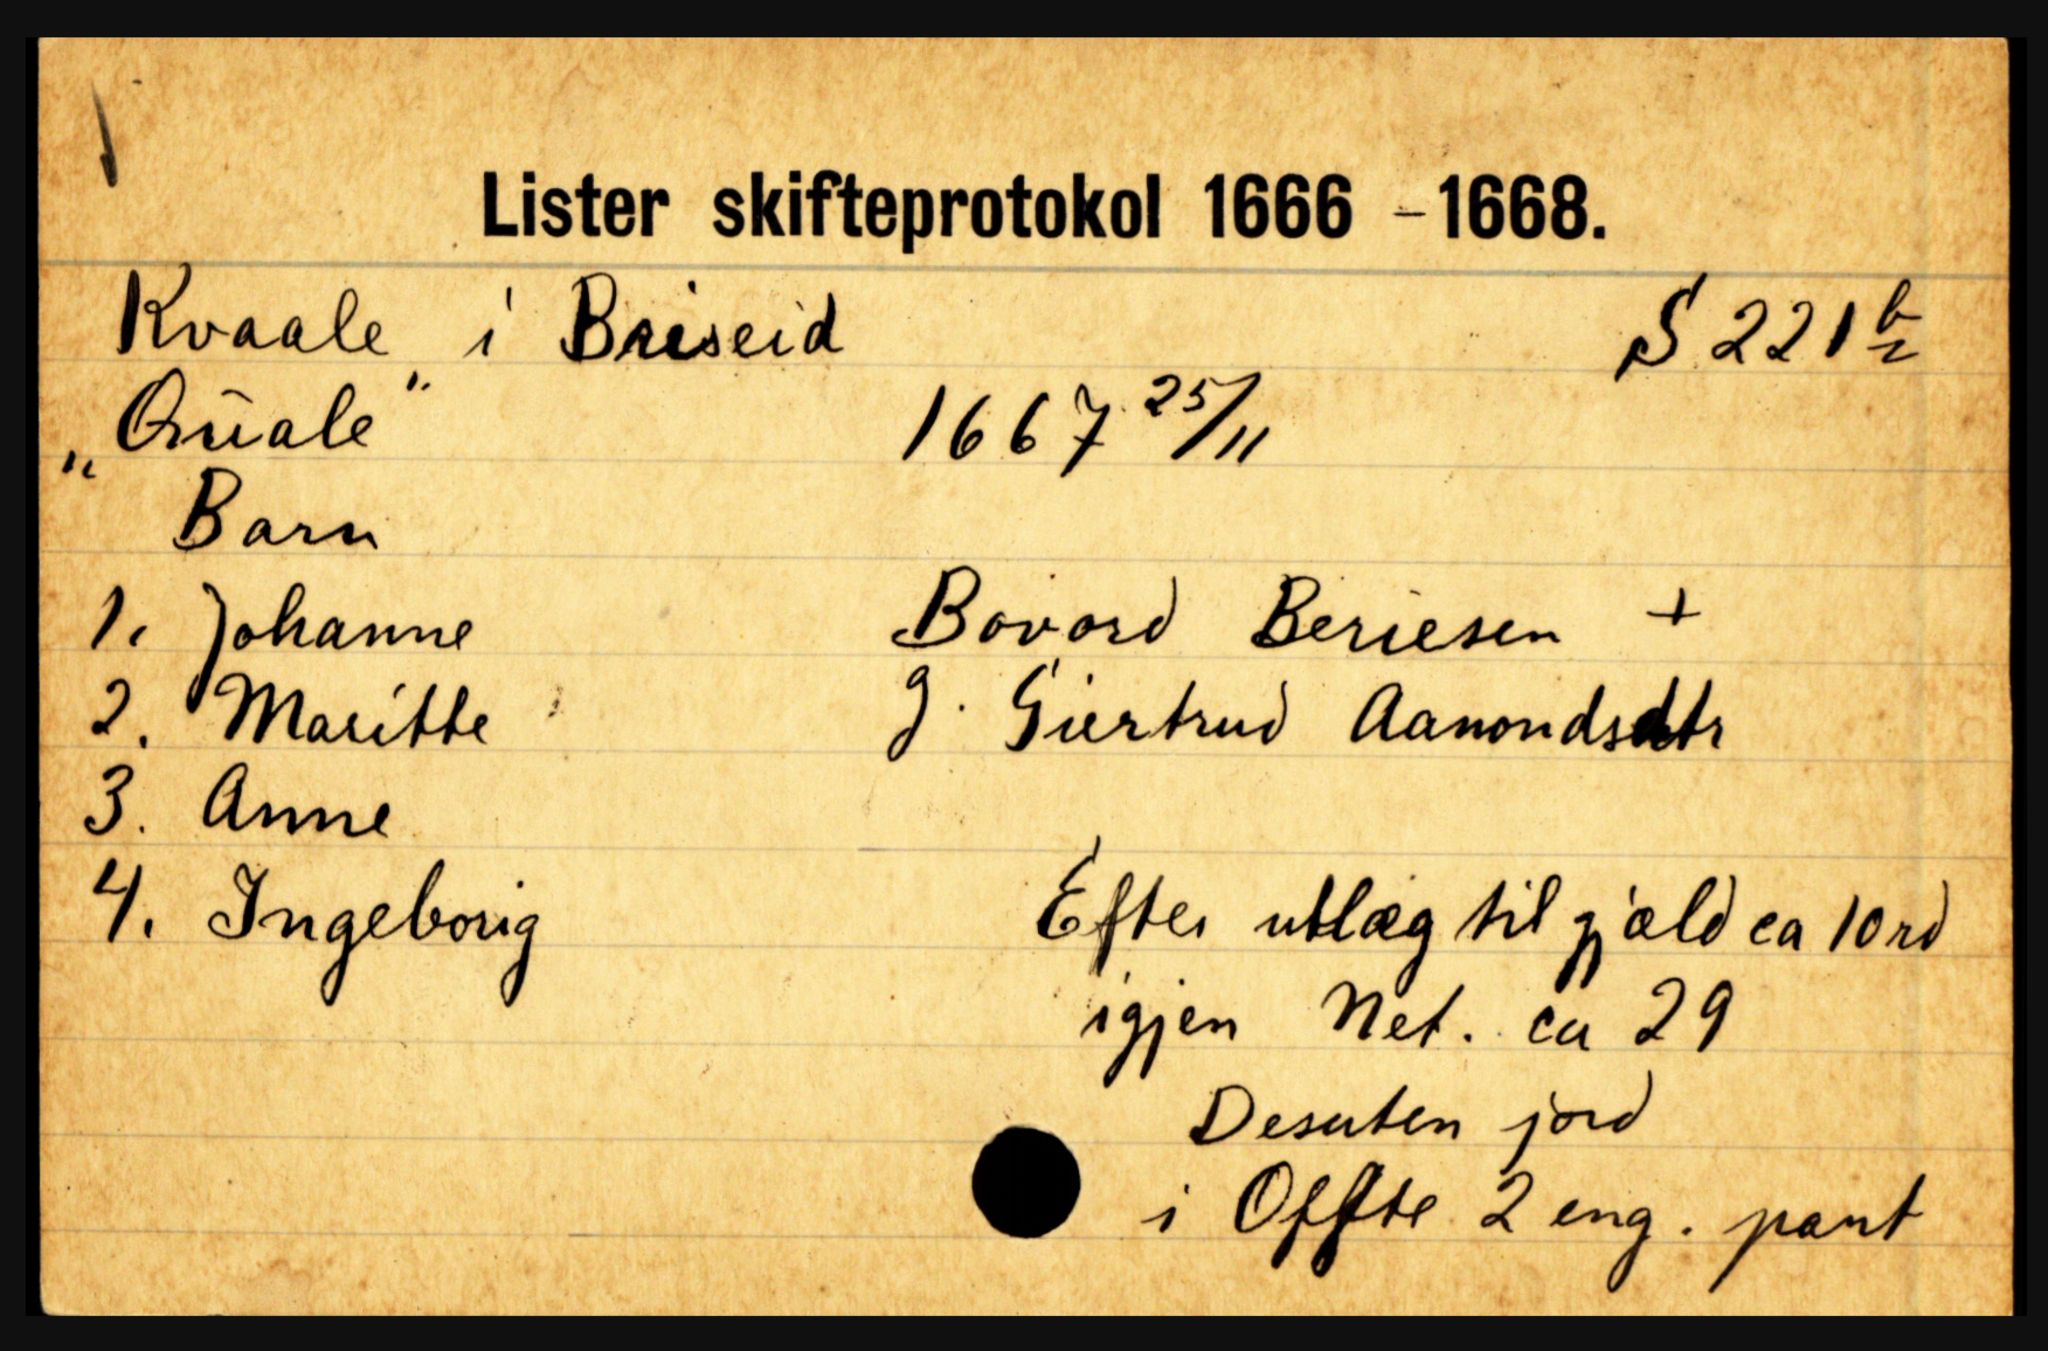 Lister skifteprotokol 1666 - 1668.
Kvaale i Briseid S 221 b
"Qŭale" 1667 25/11
Barn
1. Johanne Bovord Beriesen +
2. Maritte g. Giertrud Aanondsdtr
3. Anne
4. Ingeborig Efter utlæg til gjæld ca 10 rd
igjen Net. ca 29
Desuten jord
i Offte 2 eng. pant